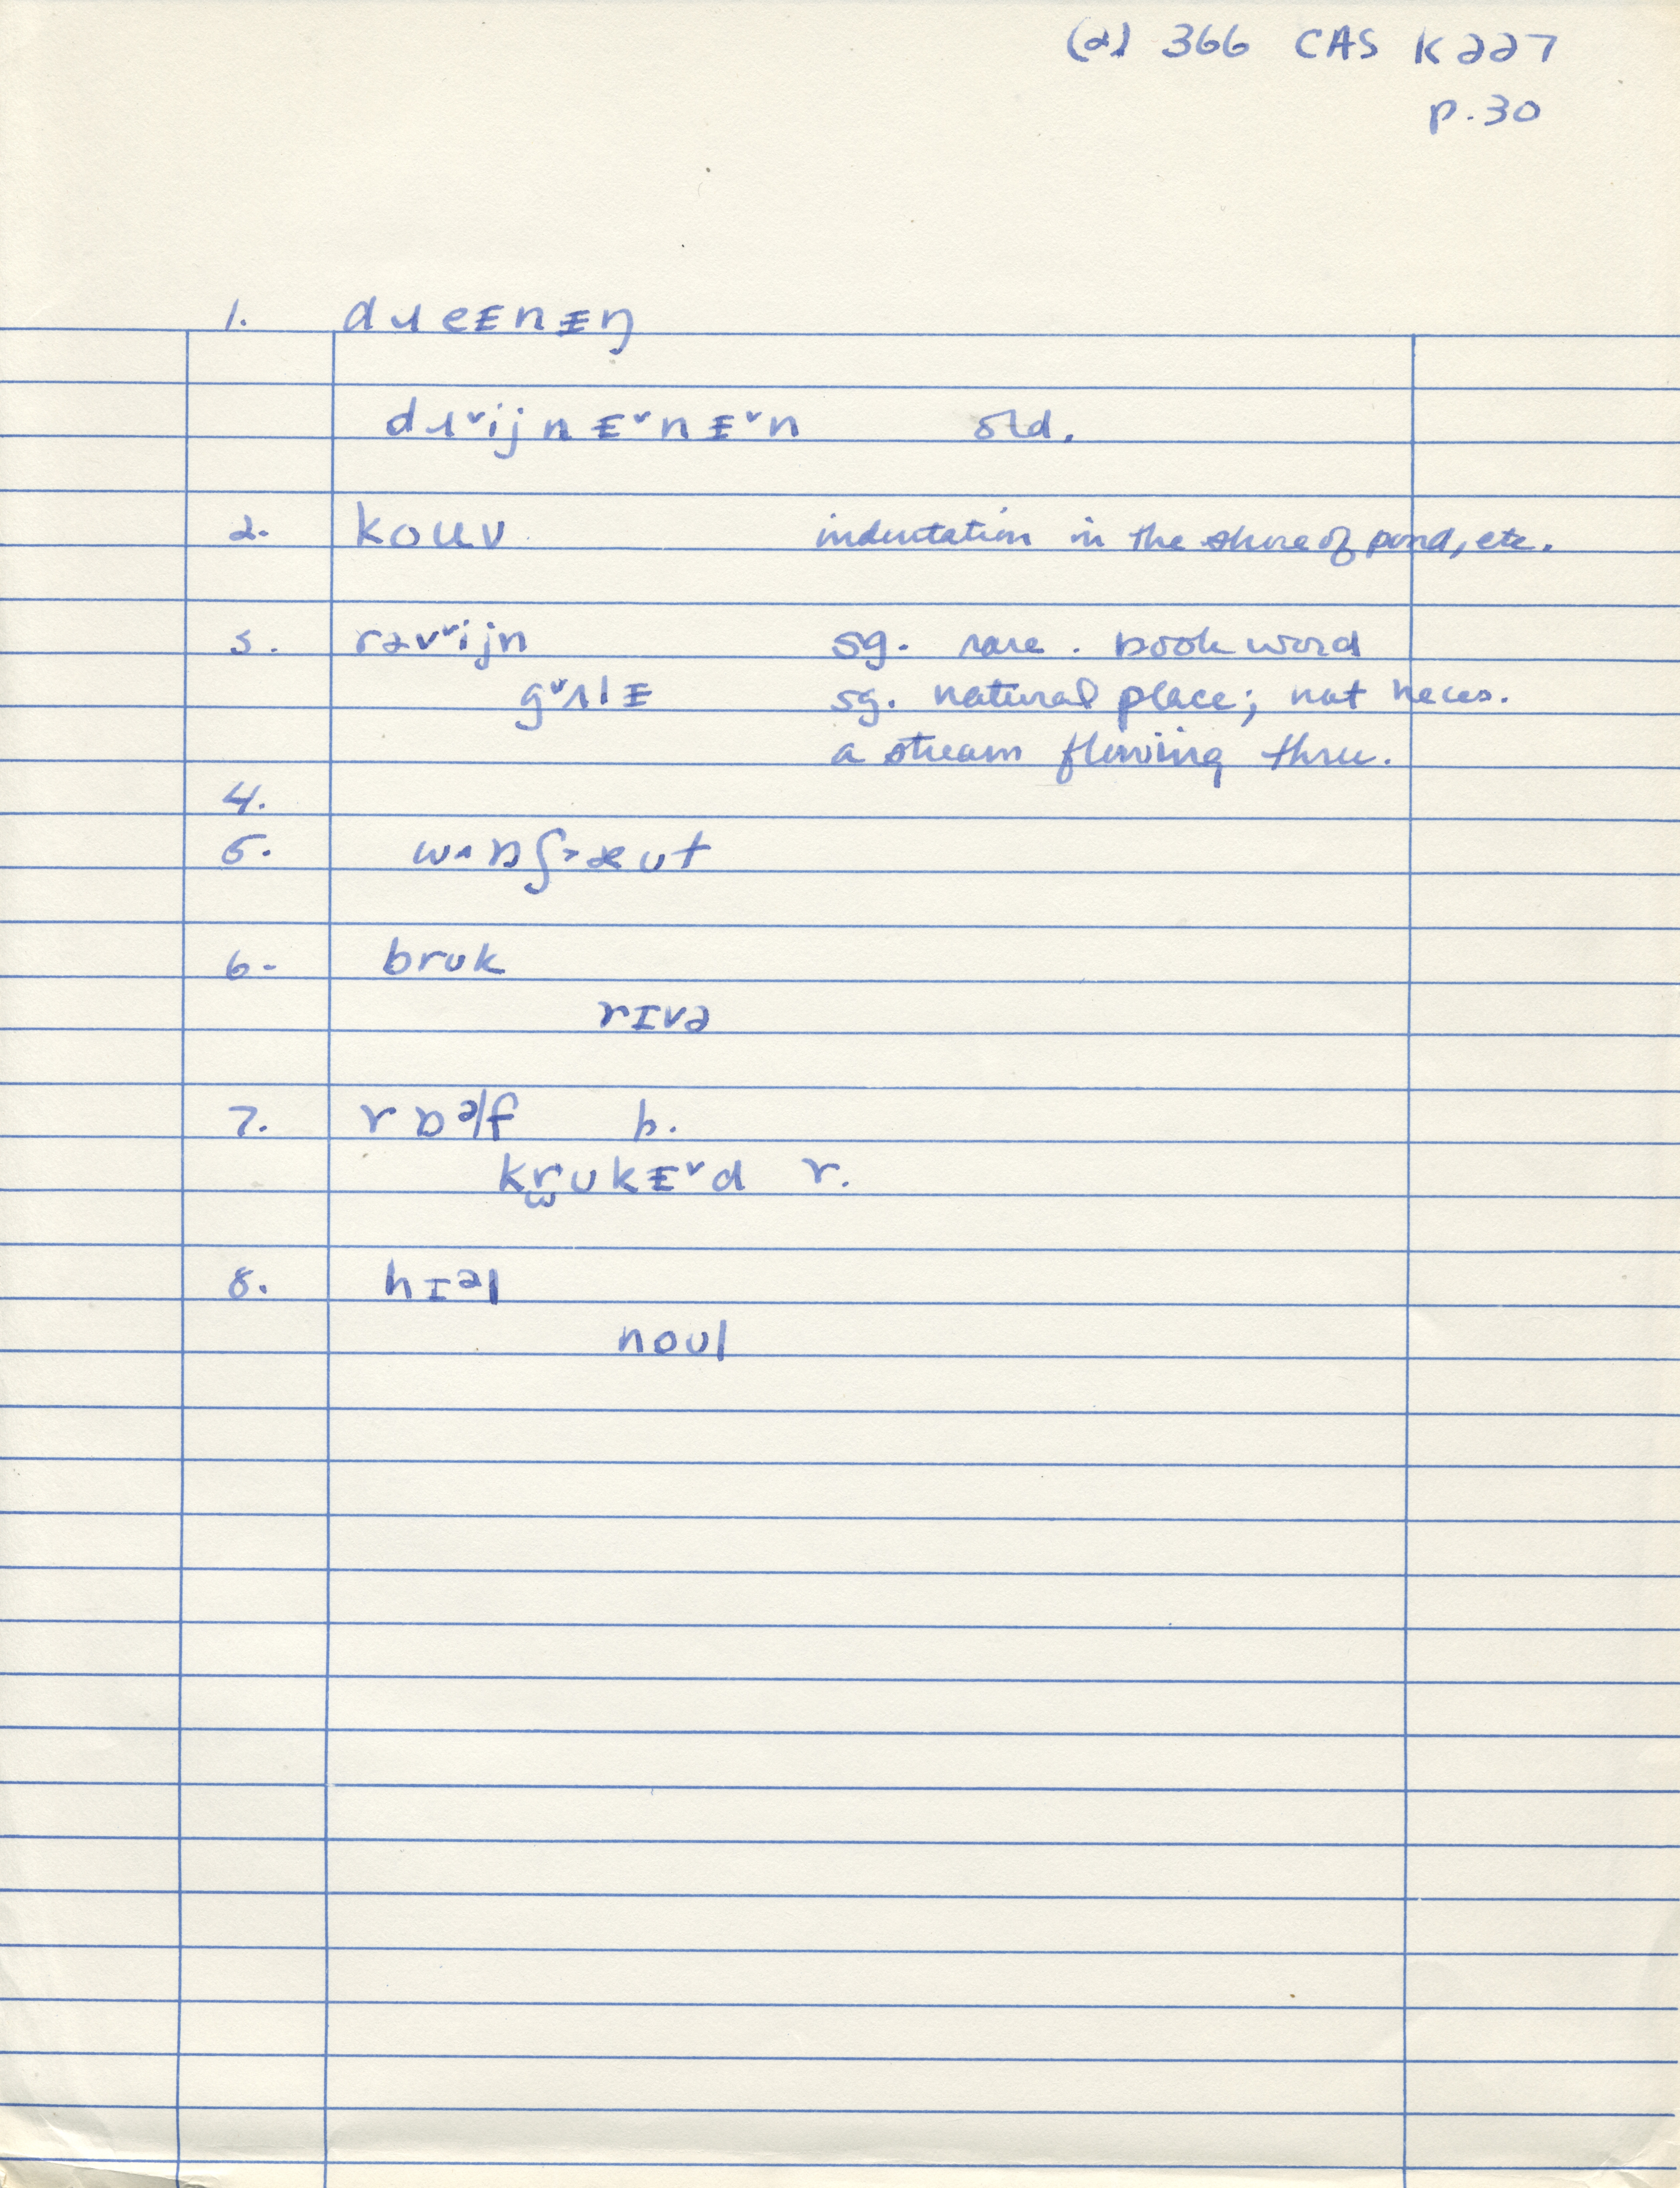 (2) 366 CAS K 227
p. 30
1. dɹeᵻnᵻŋ
dɹ˅ijnᵻ˅nᵻ˅n std.
2. kouv indentation in the shore of pond, etc.
3. rəv˅ijn sg. rare. book word
g˅ʌlᵻ sg. natural place; not neces.
a stream flowing thru.
4.
5. wɒʃæut
6. bruk
rɪvə
7. rɒᵊf b.
krukᵻ˅d r.
8. hɪᵊl
noul